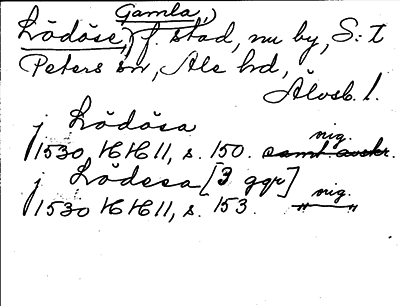 Gamla,
Lödöse, f. stad, nu by, S:t
Peters sn, Ale hd,
Älvsb. l.
j Lödösa
nig.
1530 HH 11, s. 150. samt avskr.
j Lödesa [3 ggr]
nig.
1530 HH 11, s. 153. —"—"—